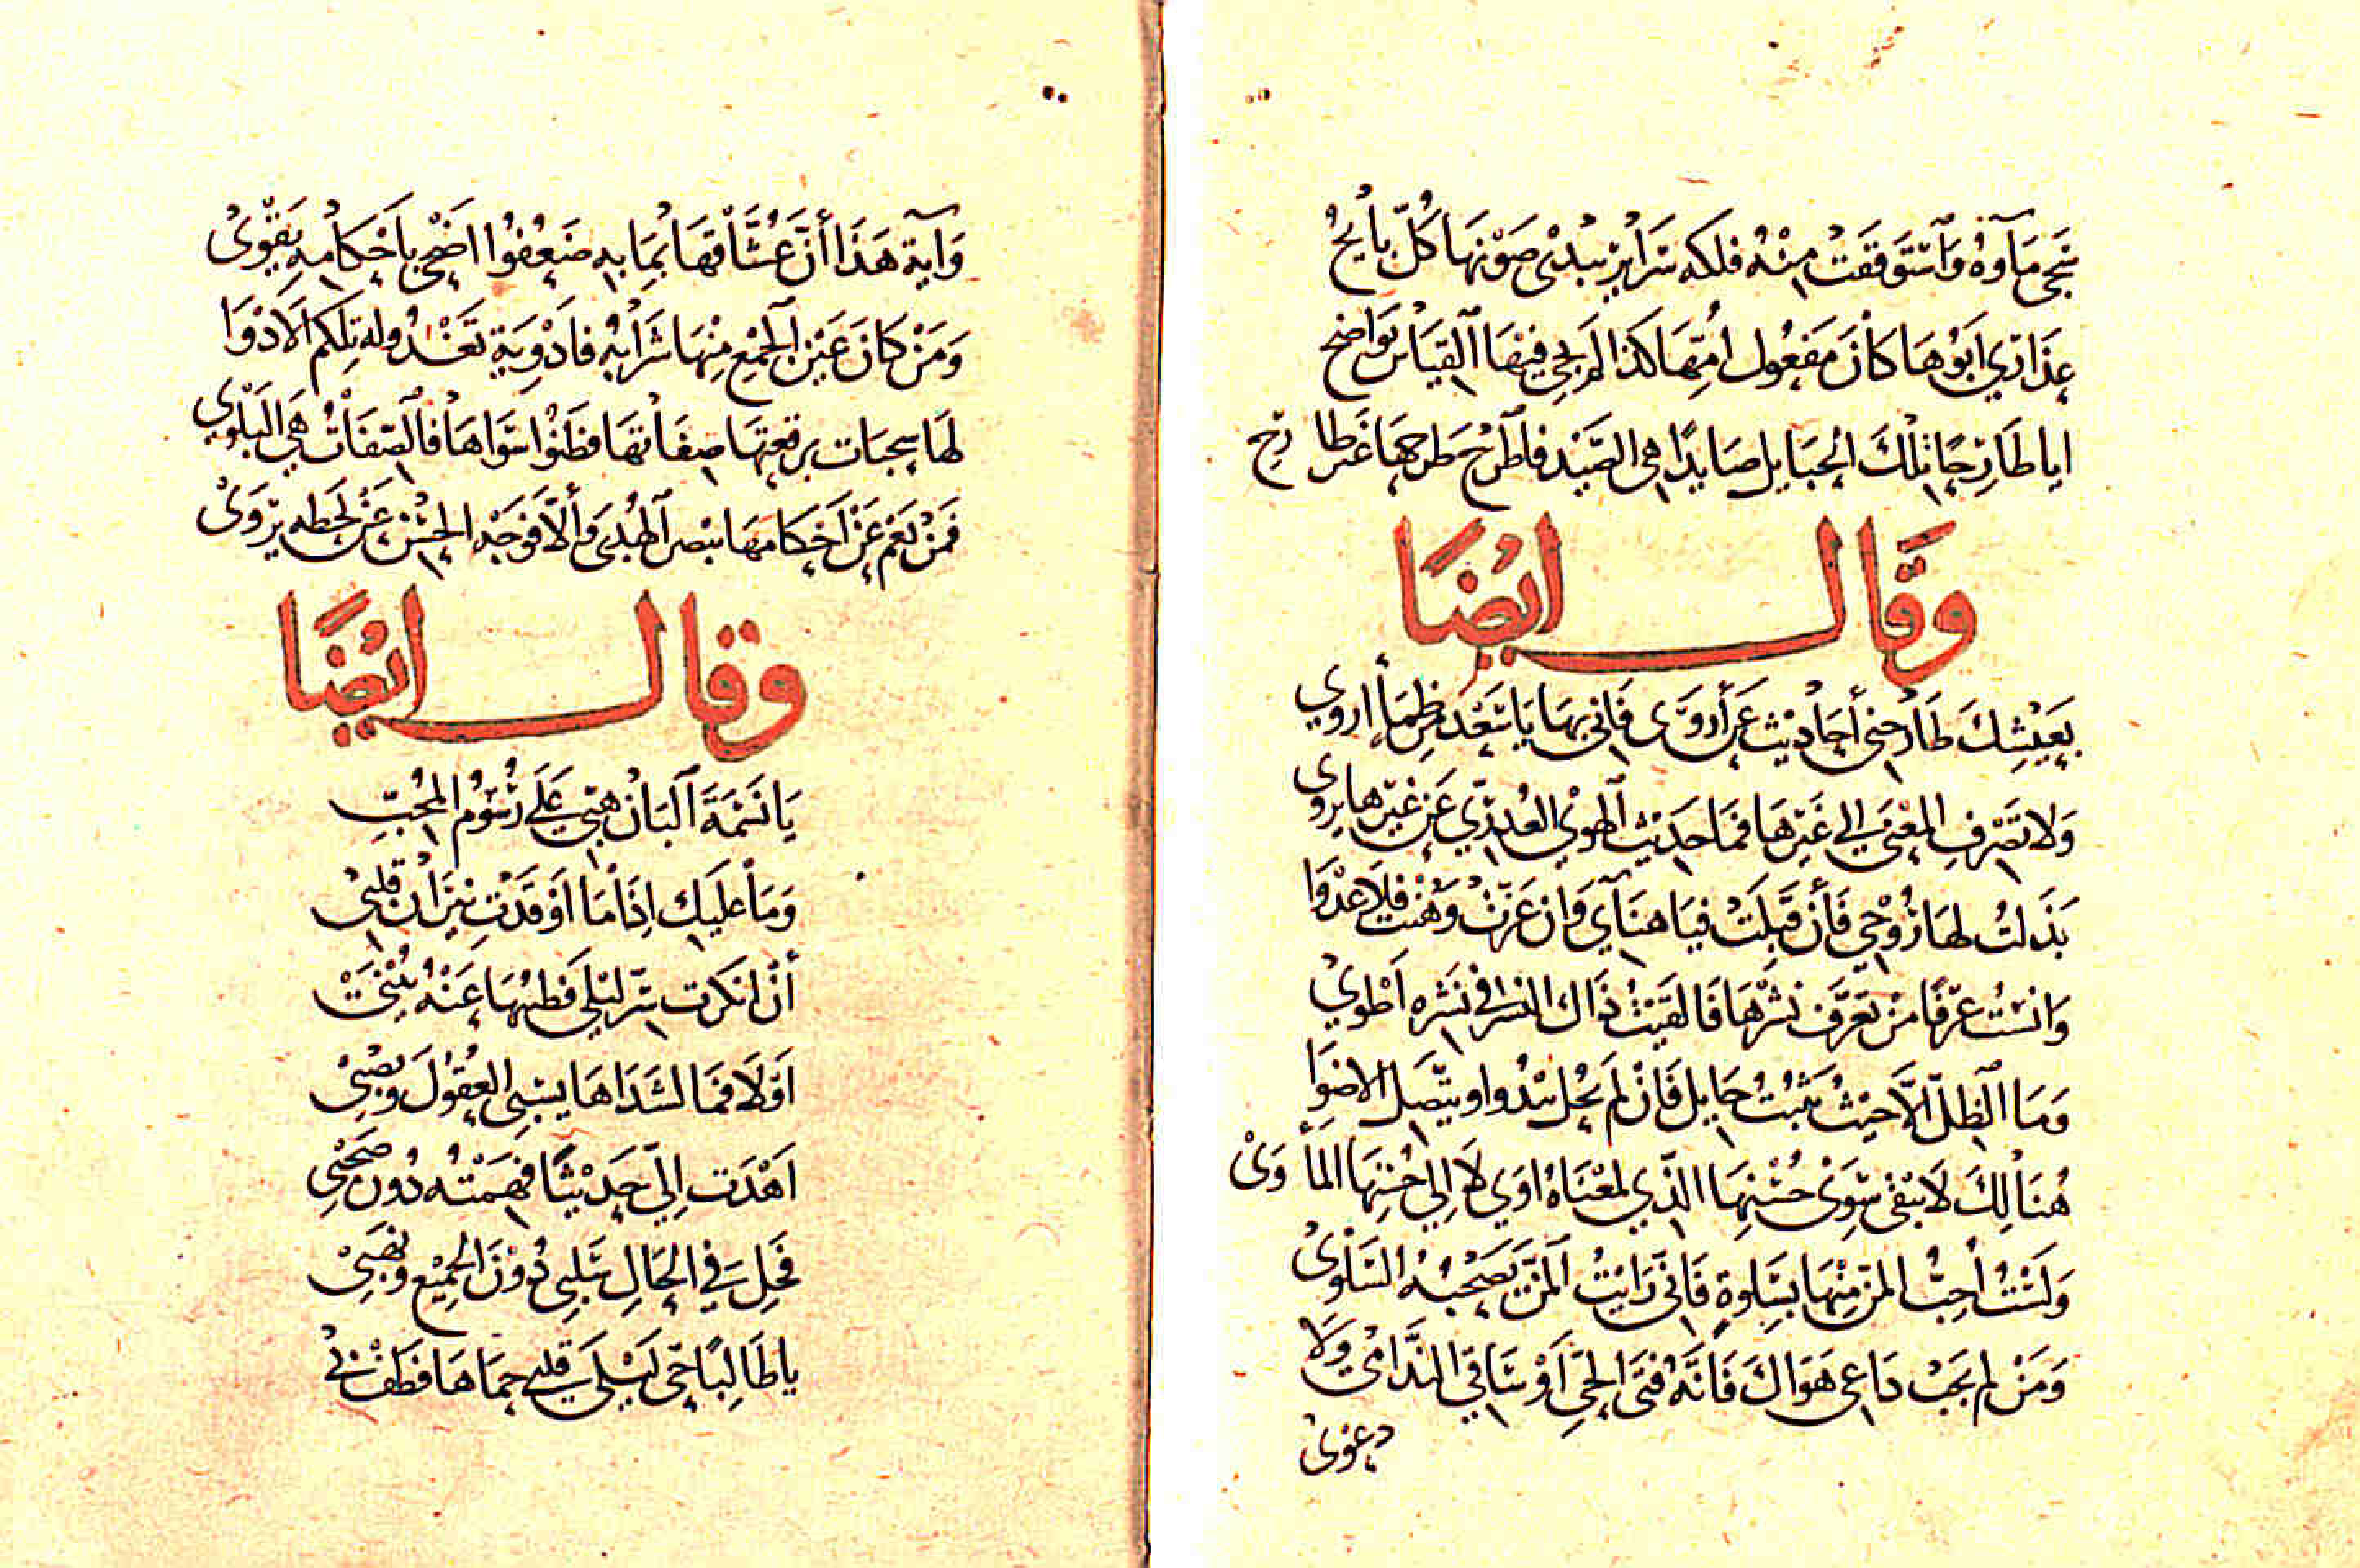 نجى مَآوهُ وَاَسْتَوقفَتْ مِنْهُ فلكه سَرَايرُ يبْدِى صَوْنهَا كُلّ بأيحُ
عِذَارِي ابُوْهَا كَانَ مَفعُول امِّهَا كَذا لم يجي فيْهَا اَلقيَاسُ بوَاضح
ايا طَارِحًا تلْكَ الحبَايل صَايدًا هى الصَّيْد فاطرَحْ مَطرحهَا غَير طارح
وقال ايضًا
بعَيْشِكَ طَارحْنى أحَادْيث عَن أروَى فَانى بهَا يَا سَعْد مِن ظمَأ اروي
وَلا تصْرفِ المعْنىَ الي غيْرهَا فمَا حَديْث اَلهوْي العُذرّي عَن غيْرهَا يروى
بَذَلتُ لهَا رُوْحِي فَأن قبلَتْ فيَا هنَآي وَان عَزّتْ وَهُنْت فلا عدْوَا
وَانسْتُ عرْفًا منْ تعَرَّف نشْرهَا فَالقيْتُ ذَاك النشر في نشَره اَطْوِيْ
وَمَا اَلظلّ الاَّ حيْثُ يَثبُتُ حَايل فَانْ لمَ يحُل يبْدُوا ويتّصِل الاضوَا
هُنَالِكَ لَا يبْقى سِوَىْ حُسْنِهَا الذّي لمعْنَاهُ اوَي لا الي حُسْنِهَا المأوَىْ
وَلَسْتُ أحِبّ المنّ مِنْهَا بسَلوةٍ فَانّى رَايْتُ اَلمنّ يصَحْبُهُ السّلْوىْ
وَمَنْ لم يجَبْ دَاعِى هَوَاكَ فَانّهُ فتىَ الحَيّ اَوْ سَاقي النّدَامْى وَلَا
دعوىْ
وَآية هَذَا أنّ عُشَّاقهَا بمَا به ضَعُفوُا اضْحى باحْكامهِ يقْوىْ
وَمَنْ كانَ عَيْن اَلجمْعِ مِنْهَا شَرَابُه فادْوِيَة تَغْدُو له تِلكم اَلادْوَا
لهَا سجبَات برقعتهَا صِفاتهَا فظنوْا سوَاهَا فاَلصّفَاتُ هي البَلْوي
فمَنْ يعْم عَنْ اَحْكامهَا يبْصر اَلهُدىَ وَألّا فوَجْه الحسْن عَنْ لحَظه يروَىْ
وقال ايضًا
يَا نَسْمَةَ اَلبَان هبّي عَلَى رُسُوْم المحُبّ
وَمَا عليَكِ اِذَا مَا اَوْقدَتْ نيْرَان قلبىْ
أنْ انكَرت سرّ ليْلي فَطيْبهَا عَنْهُ يُنْبي
اَوّلَا فمَا لشَذَاهَا يسْبِي العُقوْلَ ويصْبىْ
اَهْدَت اِليّ حَديْثًا فهِمَتْهُ دُون صَحْبي
فَحِل في الحَالِ سَلبِى دُوْنَ الجمِيْع وَنهبىْ
يا طَالِبًا حَى لَيْلَى في قلبى حِمَاهَا فطفْ بىْ